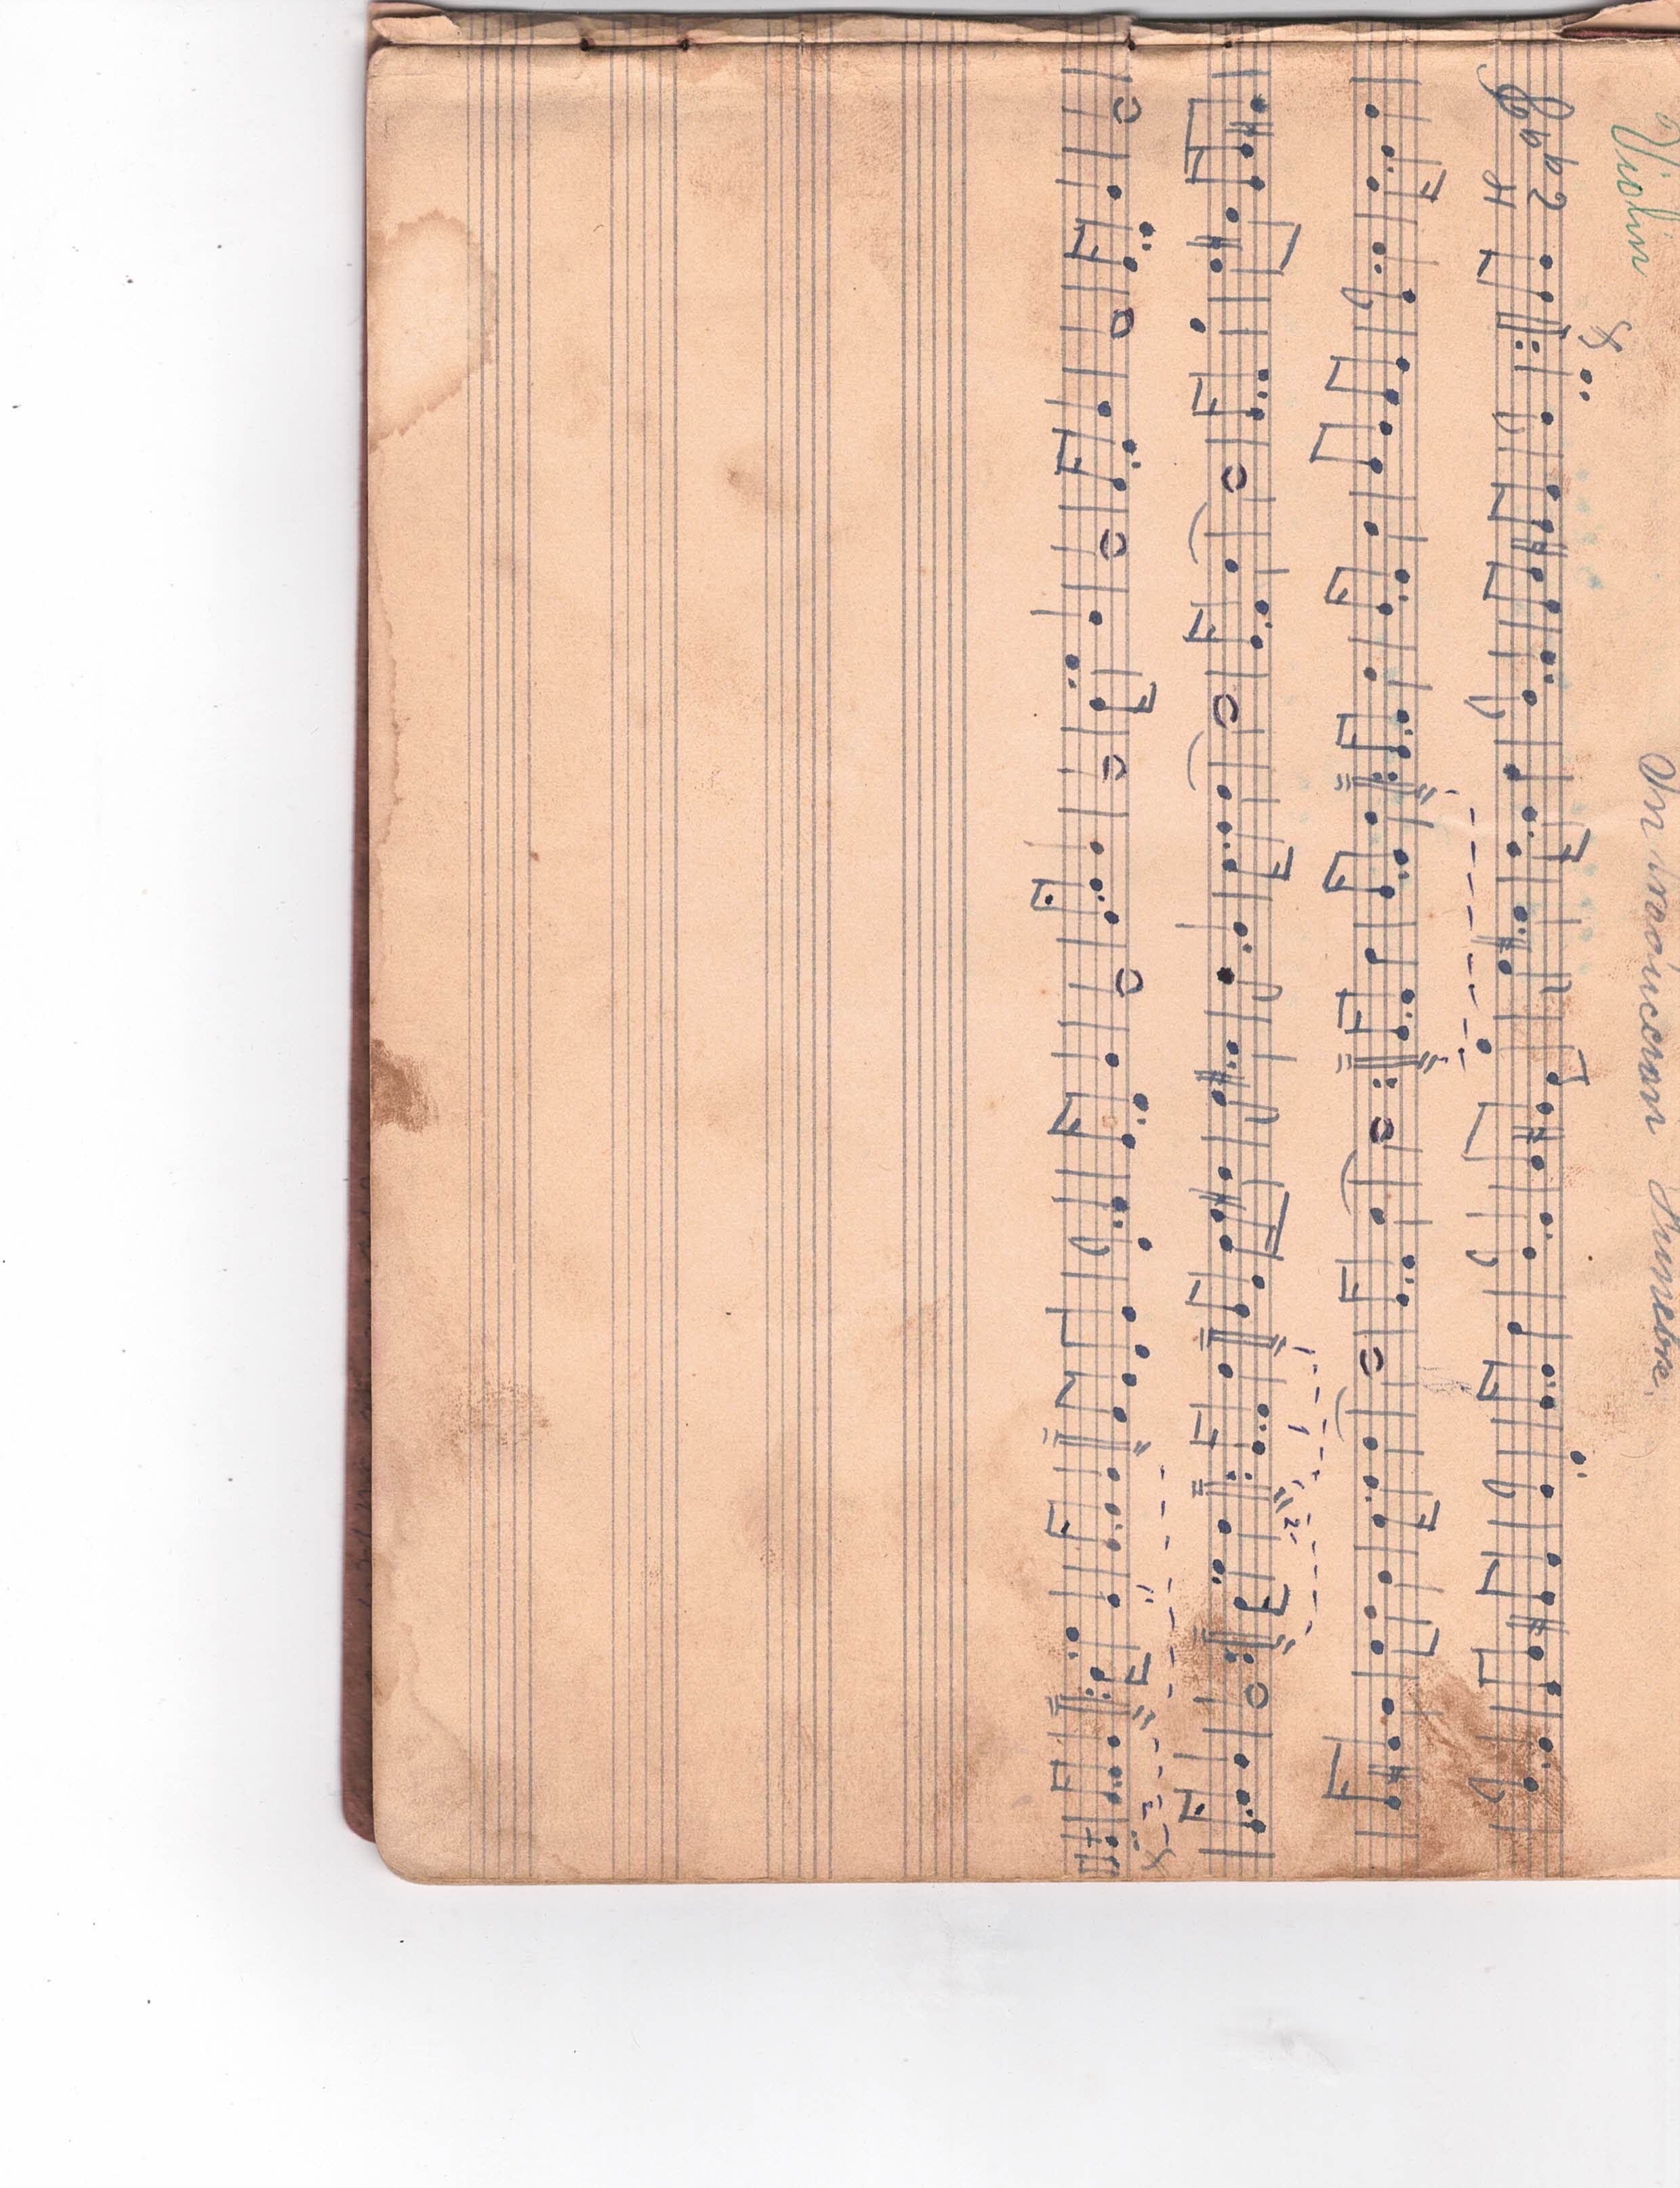 Violin
Introduccion Funebre.
2
4
1 2
1 2